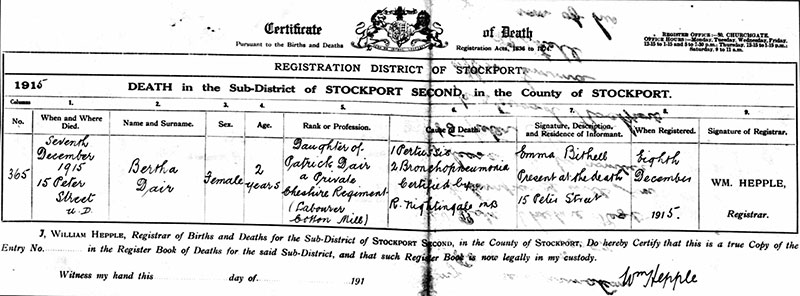 Certificate of Death
Pursuant to the Births and Deaths Registration Acts, 1836 to 1874.
REGISTER OFFICE:—50, CHURCHGATE.
OFFICE HOURS:—Monday, Tuesday, Wednesday, Friday,
Saturday, 9 to 11 a.m.
REGISTRATION DISTRICT OF STOCKPORT.
1915 DEATH in the Sub-District of STOCKPORT SECOND, in the County of STOCKPORT.
Columns 1. 2. 3. 4. 5. 6. 7. 8. 9.
No. When and Where Died. Name and Surname. Sex. Age. Rank or Profession. Cause of Death. Signature, Description, and Residence of Informant. When Registered. Signature of Registrar.
365
Seventh
December
1915
15 Peter
Street
U.D.
Bertha
Dair
Female
2
years
Daughter of
Patrick Dair
a Private
Cheshire Regiment
(Labourer
Cotton Mill)
1 Pertussis
2 Bronchopneumonia
Certified by
R. Nightingale MB
Emma Bithell
Present at the death
15 Peter Street
Eighth
December
1915.
WM. HEPPLE,
Registrar.
I, WILLIAM HEPPLE, Registrar of Births and Deaths for the Sub-District of STOCKPORT SECOND, in the County of STOCKPORT, Do hereby Certify that this is a true Copy of the
Entry No. in the Register Book of Deaths for the said Sub-District, and that such Register Book is now legally in my custody.
Witness my hand this day of 191
Wm Hepple